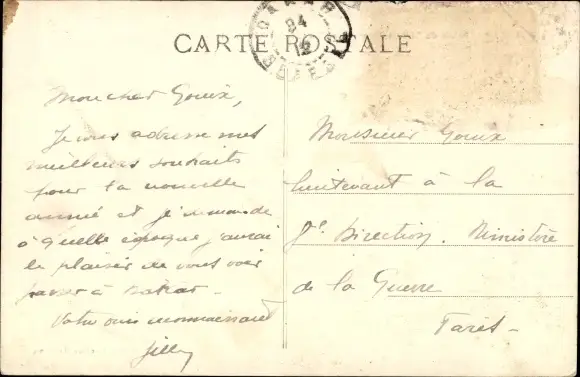 CARTE POSTALE
DAKAR
Mon cher Gouix,
Je vous adresse mes
meilleurs souhaits
pour la nouvelle
année et je me demande
à quelle époque j'aurai
le plaisir de vous voir
passer à Dakar -
Votre ami reconnaissant
Monsieur Gouix
lieutenant à la
Direction. Ministère
de la Guerre
Paris -